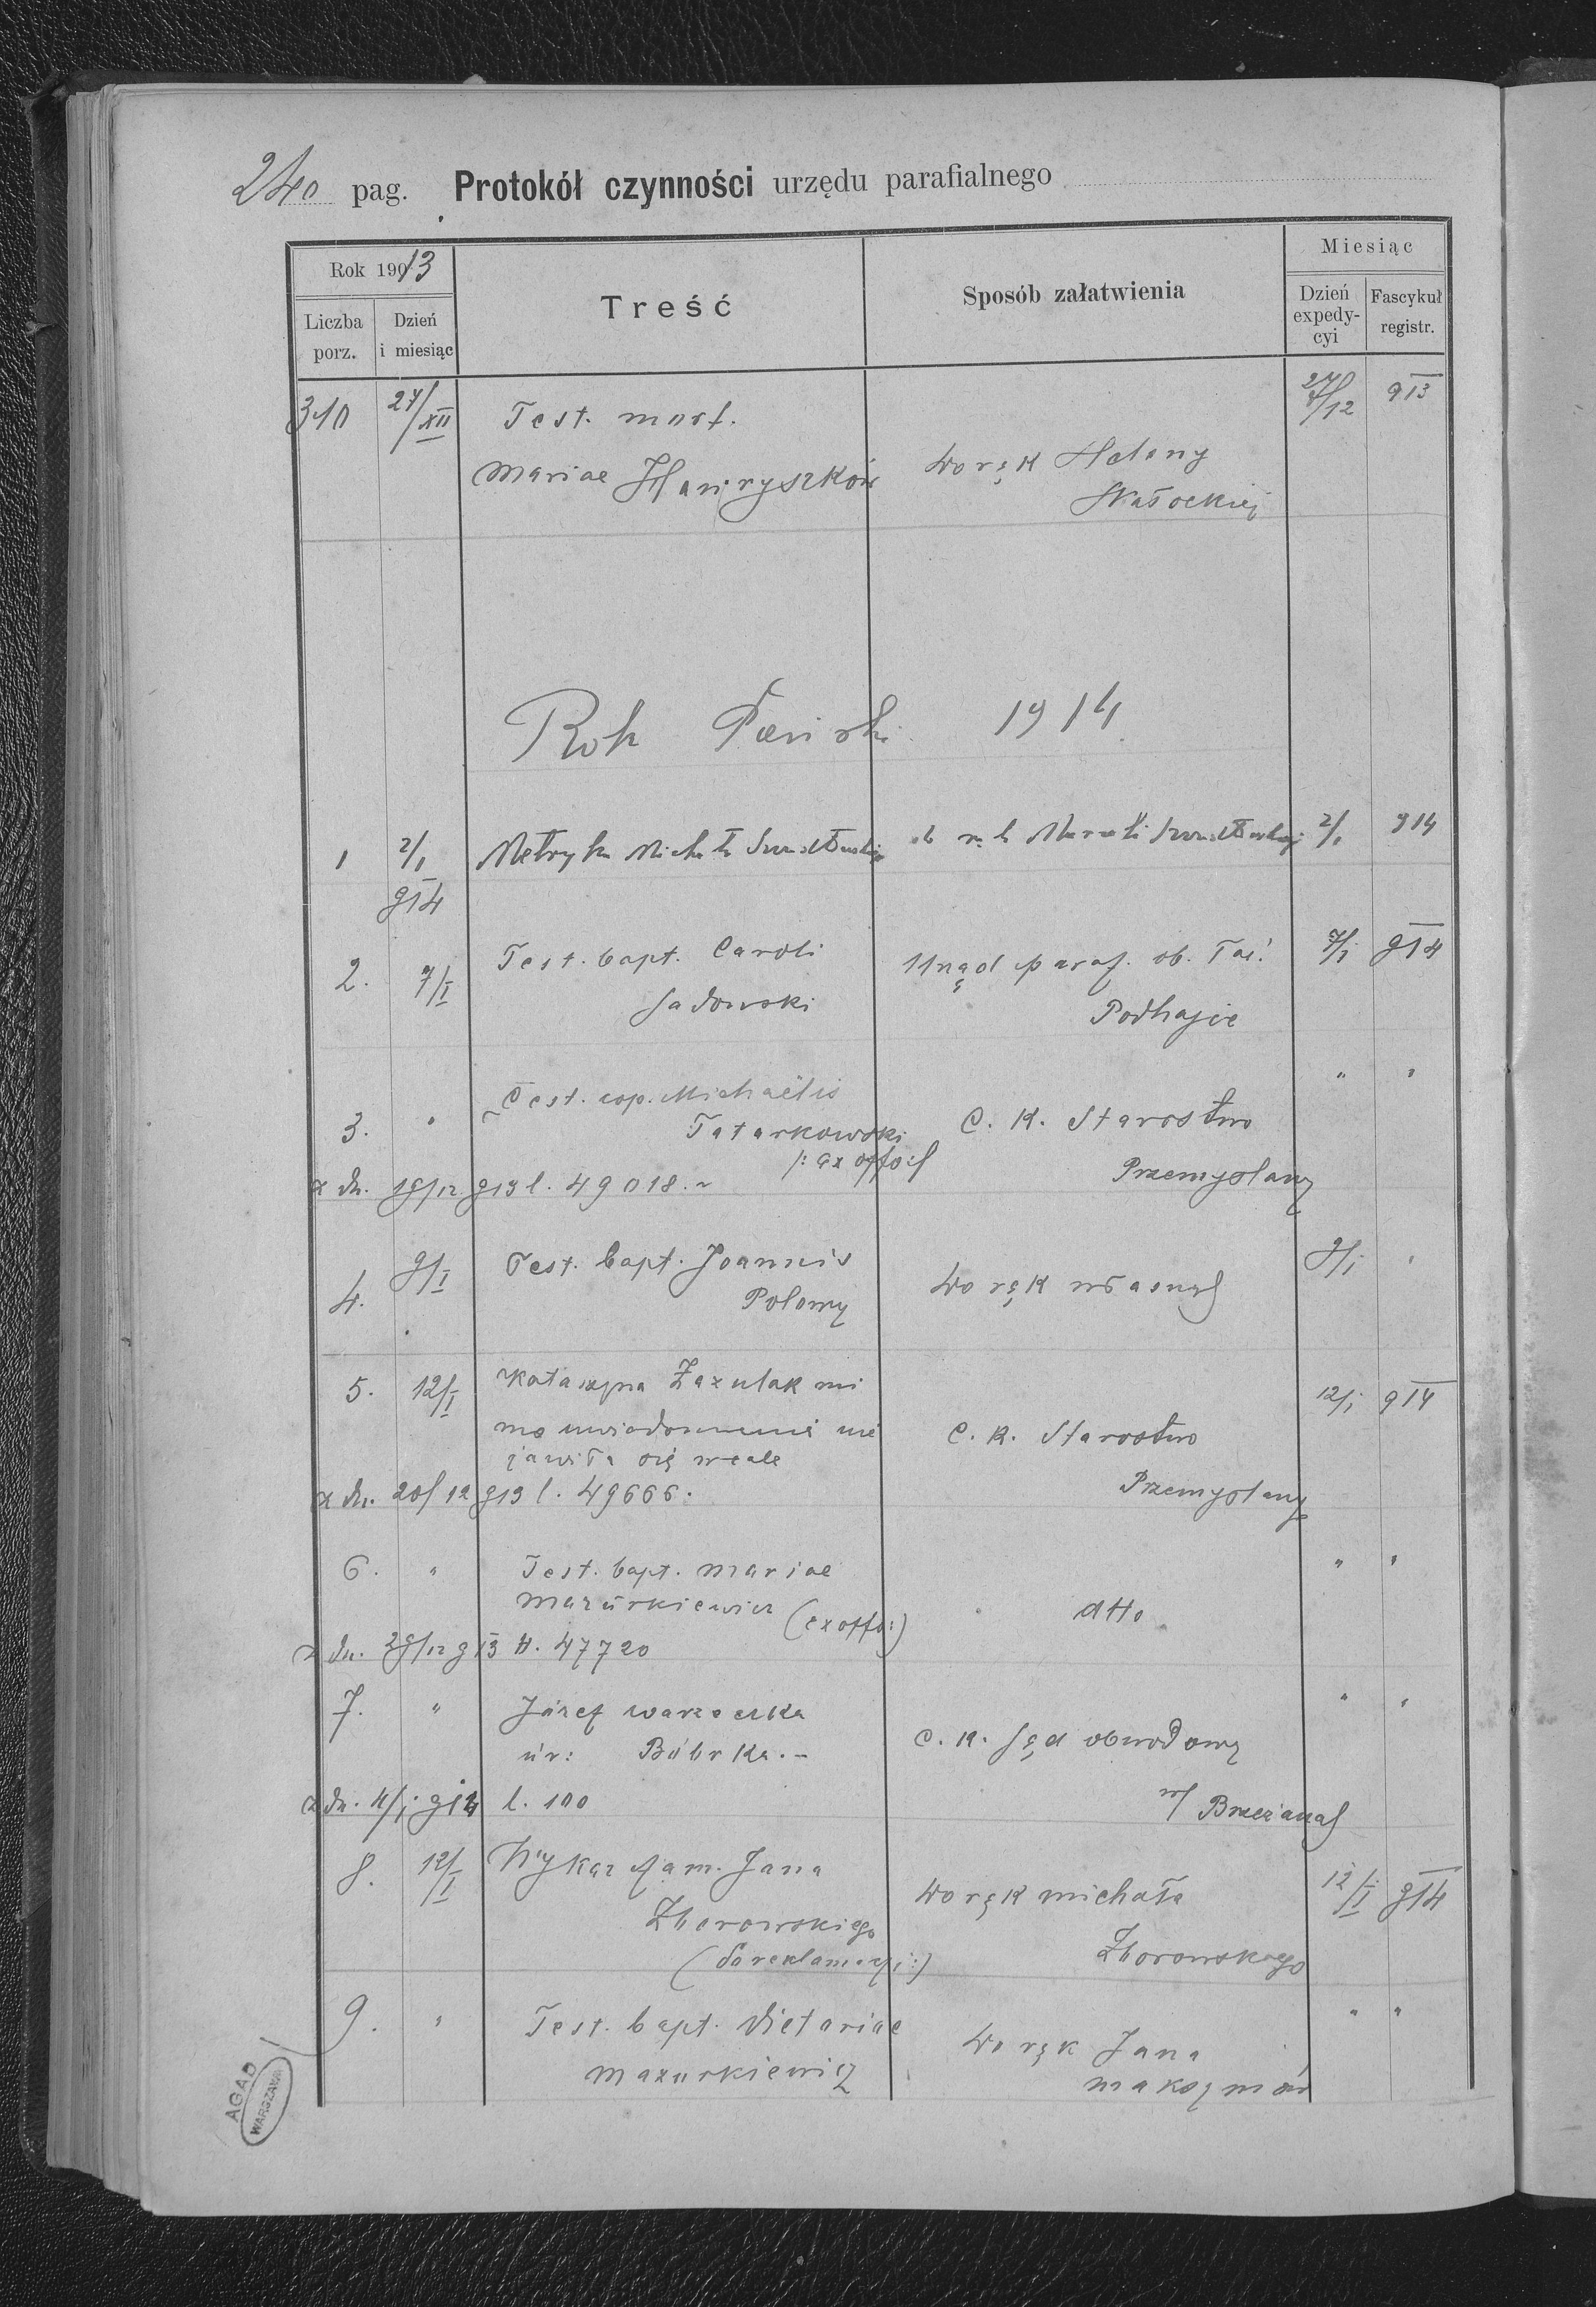 240 pag. Protokół czynności urzędu parafialnego
Rok 1913
Liczba porz.
Dzień i miesiąc
Treść
Sposób załatwienia
Miesiąc
Dzień expedycyi
Fascykuł registr.
310 27/XII Test. mort. 27/12 913
Mariae Hawryszków Do rąk Heleny
Skałockiej
Rok Pański 1914
1 2/1 Metryka Michała 2/1 914
914
2. 7/I Test. bapt. Caroli Urząd paraf. ob. łać. 7/I 914
Sadowski Podhajce
3. " Test. cop. Michaëlis C. K. Starostwo " "
Tatarkowski
/: ex offo :/ Przemyślany
z dn. 19/12 913 l. 49018.
4. 9/I Test. bapt. Joannis Do rąk własnych 9/I "
Polowy
5. 12/I Katarzyna Zazulak mi 12/I 914
mo uwiadomienia nie C. K. Starostwo
jawiła się wcale
z dn. 20/12 913 l. 49666. Przemyślany
6. " Test. bapt. Mariae " "
Mazurkiewicz (ex offo:) dtto
z dn. 29/12 913 l. 47720
7. " Józef Warzeczka C. K. Sąd obwodowy " "
ur: Bóbrka.
z dn. 4/I 914 l. 100 w/ Brzeżanach
8. 12/I Wykaz fam. Jana Do rąk Michała 12/I 914
Zborowskiego Zborowskiego
(do reklamacyi:)
9. " Test. bapt. Victoriae Do rąk Jana " "
Mazurkiewicz
AGAD
WARSZAWA